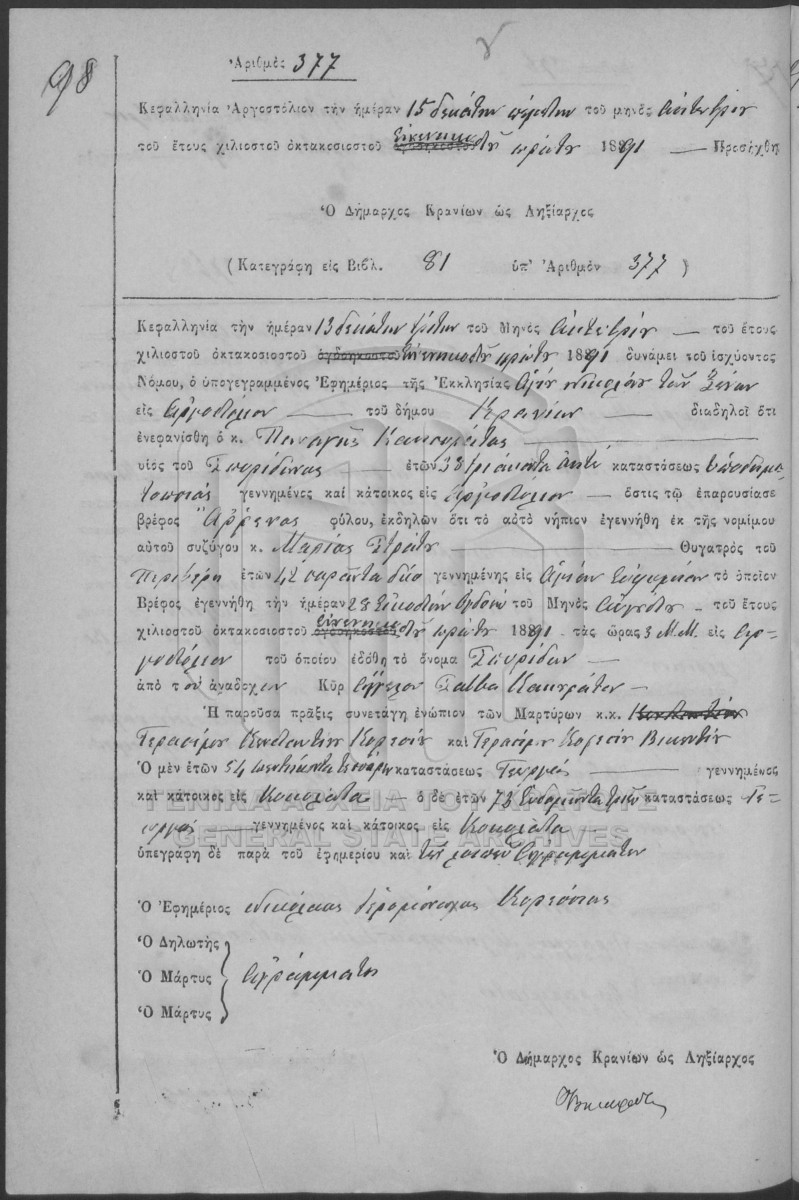 98
Ἀριθμὸς 377
Κεφαλληνία Ἀργοστόλιον τὴν ἡμέραν 15 δεκάτην πέμπτην τοῦ μηνὸς Ὀκτωβρίου
τοῦ ἔτους χιλιοστοῦ ὀκτακοσιοστοῦ ὀγδοηκοστοῦ ἐνενηκοστοῦ πρώτου 1891 — Προσήχθη
Ὁ Δήμαρχος Κρανίων ὡς Ληξίαρχος
(Κατεγράφη εἰς Βιβλ. 81 ὑπ' Ἀριθμὸν 377)
Κεφαλληνία τὴν ἡμέραν 13 δεκάτην τρίτην τοῦ Μηνὸς Ὀκτωβρίου — τοῦ ἔτους
χιλιοστοῦ ὀκτακοσιοστοῦ ὀγδοηκοστοῦ ἐνενηκοστοῦ πρώτου 1891 δυνάμει τοῦ ἰσχύοντος
Νόμου, ὁ ὑπογεγραμμένος Ἐφημέριος τῆς Ἐκκλησίας Ἁγίου Νικολάου τῶν Ξένων
εἰς Ἀργοστόλιον — τοῦ δήμου Κρανίων — διαδηλοῖ ὅτι
ἐνεφανίσθη ὁ κ. Παναγῆς
υἱὸς τοῦ Σπυρίδωνος — ἐτῶν 38 τριάκοντα ὀκτὼ καταστάσεως ὑποδημα
τοποιός γεννημένος καὶ κάτοικος εἰς Ἀργοστόλιον — ὅστις τῷ ἐπαρουσίασε
βρέφος Ἄρρενος φύλου, ἐκδηλῶν ὅτι τὸ αὐτὸ νήπιον ἐγεννήθη ἐκ τῆς νομίμου
αὐτοῦ συζύγου κ. Μαρίας — Θυγατρὸς τοῦ
ἐτῶν 42 σαράντα δύο γεννημένης εἰς Ἁγίαν Εὐφημίαν τὸ ὁποῖον
Βρέφος ἐγεννήθη τὴν ἡμέραν 28 εἰκοστὴν ὀγδόην τοῦ Μηνὸς Αὐγούστου — τοῦ ἔτους
χιλιοστοῦ ὀκτακοσιοστοῦ ὀγδοηκοστοῦ ἐνενηκοστοῦ πρώτου 1891 τὰς ὥρας 3 Μ.Μ. εἰς Ἀρ-
γοστόλιον τοῦ ὁποίου ἐδόθη τὸ ὄνομα Σπυρίδων —
ἀπὸ τὸν ἀνάδοχον Κὺρ Ἄγγελον
Ἡ παροῦσα πρᾶξις συνετάγη ἐνώπιον τῶν Μαρτύρων κ.κ.
Γερασίμου καὶ Γερασίμου
Ὁ μὲν ἐτῶν 54 πεντήκοντα τεσσάρων καταστάσεως Γεωργός — γεννημένος
καὶ κάτοικος εἰς Κοκολάτα — ὁ δὲ ἐτῶν 73 ἑβδομήκοντα τριῶν καταστάσεως Γε-
ωργός — γεννημένος καὶ κάτοικος εἰς Κοκολάτα —
ὑπεγράφη δὲ παρὰ τοῦ ἐφημερίου καὶ τῶν λοιπῶν ἀγραμμάτων
ΓΕΝΙΚΑ ΑΡΧΕΙΑ ΤΟΥ ΚΡΑΤΟΥΣ
GENERAL STATE ARCHIVES
Ὁ Ἐφημέριος Νικόλαος Ἱερομόναχος
Ὁ Δηλωτὴς
Ὁ Μάρτυς ἀγράμματοι
Ὁ Μάρτυς
Ὁ Δήμαρχος Κρανίων ὡς Ληξίαρχος